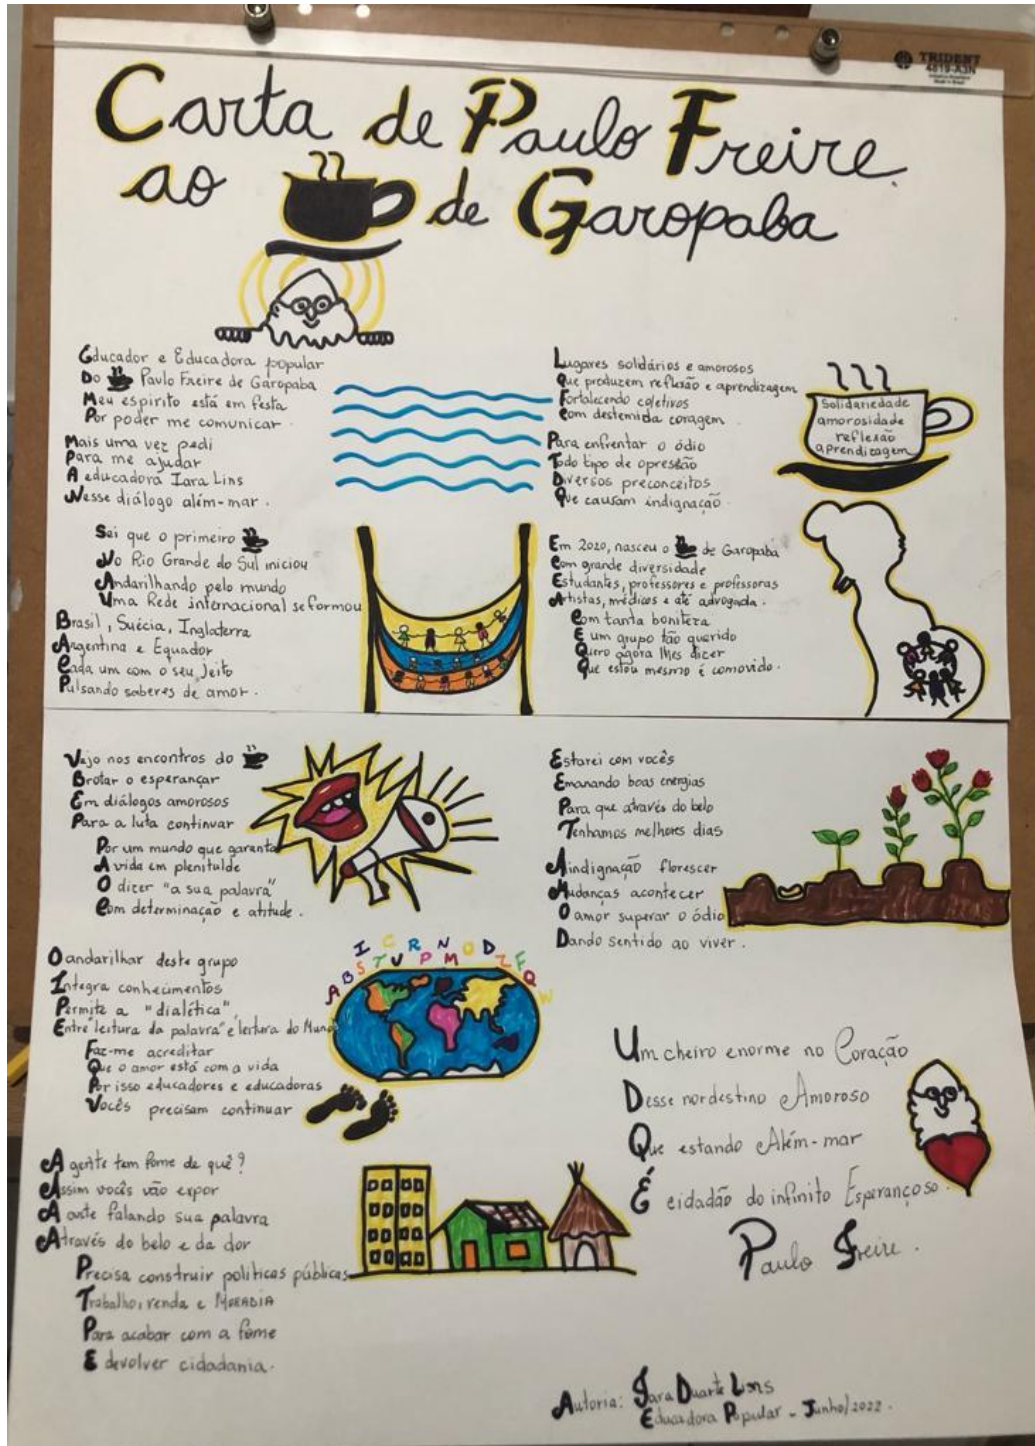 TRIDENT
4619-A3N
Carta de Paulo Freire
ao de Garopaba
Educador e Educadora popular
Do Paulo Freire de Garopaba
Meu espirito está em festa
Por poder me comunicar.
Mais uma vez pedi
Para me ajudar
A educadora Iara Lins
Nesse diálogo além-mar.
Sei que o primeiro
No Rio Grande do Sul iniciou
Andarilhando pelo mundo
Uma Rede internacional se formou
Brasil, Suécia, Inglaterra
Argentina e Equador
Cada um com o seu jeito
Pulsando saberes de amor.
Lugares solidários e amorosos
Que produzem reflexão e aprendizagem
Fortalecendo coletivos
Com destemida coragem.
Para enfrentar o ódio
Todo tipo de opressão
Diversos preconceitos
Que causam indignação.
Solidariedade
amorosidade
reflexão
aprendizagem
Em 2020, nasceu o de Garopaba
Com grande diversidade
Estudantes, professores e professoras
Artistas, médicos e até advogada.
Com tanta boniteza
E um grupo tão querido
Quero agora lhes dizer
Que estou mesmo é comovido.
Vejo nos encontros do
Brotar o esperançar
Em diálogos amorosos
Para a luta continuar
Por um mundo que garanta
A vida em plenitulde
O dizer "a sua palavra"
Com determinação e atitude.
O andarilhar deste grupo
Integra conhecimentos
Permite a "dialética"
Entre "leitura da palavra" e leitura do Mundo
Faz-me acreditar
Que o amor está com a vida
Por isso educadores e educadoras
Vocês precisam continuar
A B S I T C U R P N M O D Z F Q W
A gente tem fome de quê?
Assim vocês vão expor
A arte falando sua palavra
Através do belo e da dor
Precisa construir políticas públicas
Trabalho, renda e MORADIA
Para acabar com a fome
E devolver cidadania.
Estarei com vocês
Emanando boas energias
Para que através do belo
Tenhamos melhores dias
A indignação florescer
Mudanças acontecer
O amor superar o ódio
Dando sentido ao viver.
Um cheiro enorme no Coração
Desse nordestino Amoroso
Que estando Além-mar
É cidadão do infinito Esperançoso.
Paulo Freire.
Autoria: Iara Duarte Lins
Educadora Popular - Junho/2022.